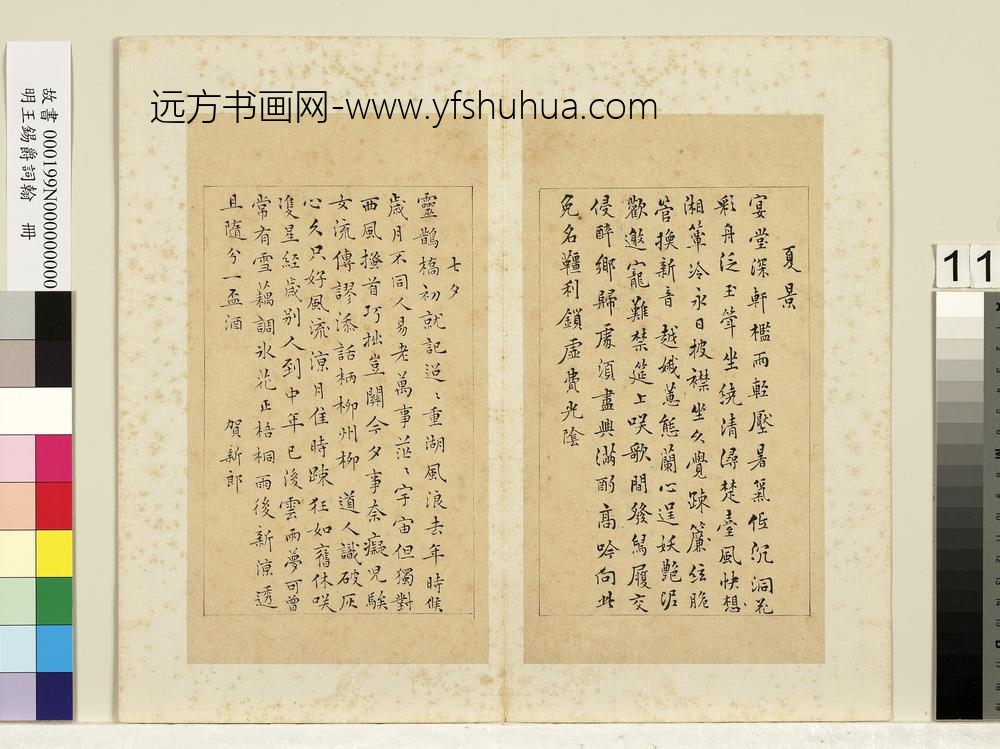 远方书画网-www.yfshuhua.com
故書 000199N000000000
明王錫爵詞翰 冊
11
夏景
宴堂深軒檻雨輕壓暑氣低沉洞花
彩舟泛玉斝坐繞清潯楚臺風快想
湘簟冷永日披襟坐久覺疎簾絃脆
管換新音越娥蕙態蘭心逞妖艷泥
歡邀寵難禁筵上咲歌間發舄履交
侵醉鄉歸處須盡興滿酌高吟向此
免名韁利鎖虛費光陰
七夕
靈鵲橋初就記迢〻重湖風浪去年時候
歲月不同人易老萬事茫〻宇宙但獨對
西風搔首巧拙豈關今夕事奈癡兒騃
女流傳謬添話柄柳州柳 道人識破灰
心久只好風流涼月佳時疎狂如舊休咲
雙星經歲別人到中年已後雲雨夢可曾
常有雪藕調氷花正梧桐雨後新涼透
且隨分一盃酒 賀新郎